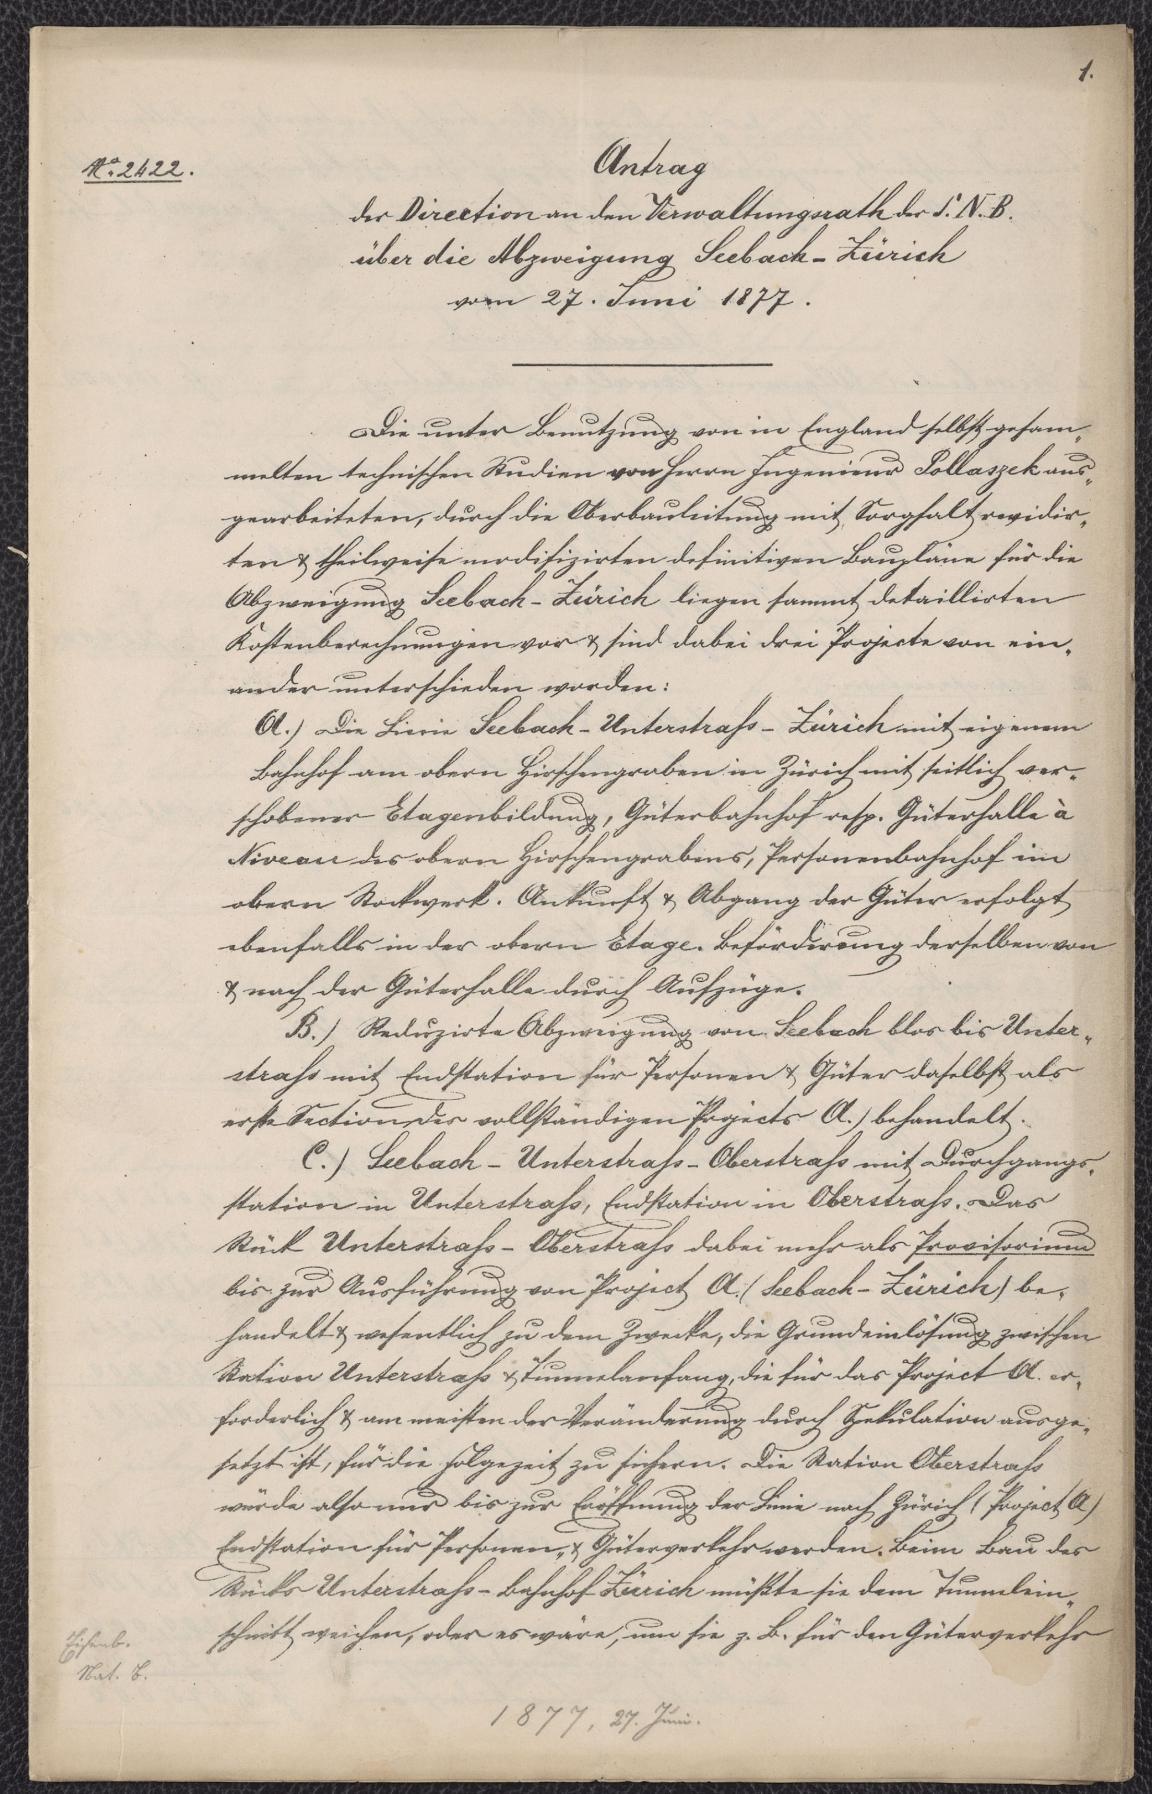 1.
No. 2422.
Antrag
der Direction an den Verwaltungsrath der S. N. B.
über die Abzweigung Seebach - Zürich
vom 27. Juni 1877.
Die unter Benutzung von in England selbst gesam„
melten technischen Studien von Herrn Ingenieur Pollaszek aus„
gearbeiteten, durch die Oberbauleitung mit Sorgfalt revidir„
ten & theilweise modifizirten definitiven Baupläne für die
Abzweigung Seebach - Zürich liegen sammt detaillirten
Kostenberechnungen vor & sind dabei drei Projecte von ein„
ander unterschieden worden:
A.) Die Linie Seebach - Unterstraß - Zürich mit eigenem
Bahnhof am obern Hirschengraben in Zürich mit seitlich ver„
schobener Etagenbildung, Güterbahnhof resp. Güterhalle à
Niveau des obern Hirschengrabens, Personenbahnhof im
obern Stockwerk. Ankunft & Abgang der Güter erfolgt
ebenfalls in der obern Etage. Beförderung derselben von
& nach der Güterhalle durch Aufzüge.
B.) Reduzirte Abzweigung von Seebach blos bis Unter„
straß mit Endstation für Personen & Güter daselbst als
erste Section des vollständigen Projects A.) behandelt.
C.) Seebach - Unterstraß - Oberstraß mit Durchgangs„
station in Unterstraß, Endstation in Oberstraß. Das
Stück Unterstraß - Oberstraß dabei mehr als Provisorium
bis zur Ausführung von Project A. (Seebach - Zürich) be„
handelt & wesentlich zu dem Zwecke, die Grundeinlösung zwischen
Station Unterstraß & Tunnelanfang, die für das Project A. er„
forderlich & am meisten der Veränderung durch Spekulation ausge„
setzt ist, für die Folgezeit zu sichern. Die Station Oberstraß
würde also nur bis zur Eröffnung der Linie nach Zürich (Project A)
Endstation für Personen„ & Güterverkehr werden. Beim Bau des
Stücks Unterstraß - Bahnhof Zürich müßte sie dem Tunnelein„
schnitt weichen, oder es wäre, um sie z. B. für den Güterverkehr
Eisenb.
Nat. B.
1877, 27. Juni.